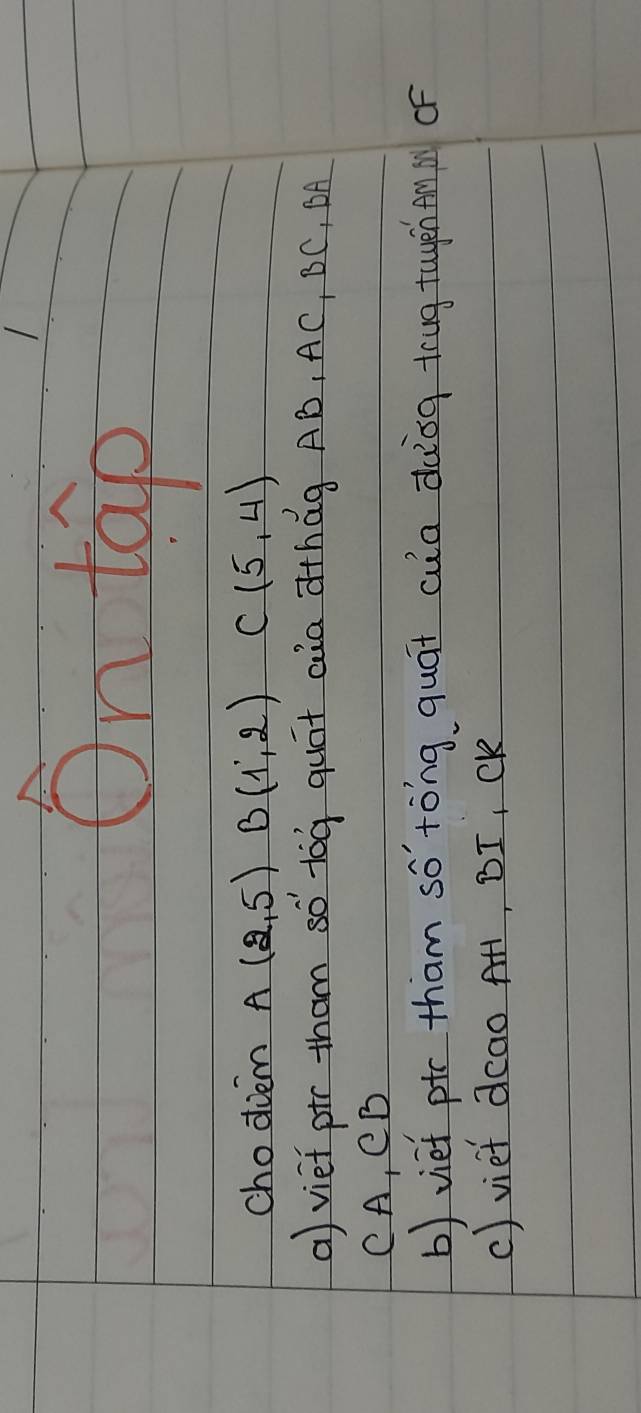 Ôn tập
Cho điểm A(2,5) B(1,2) C(5,4)
a) viết ptr tham số tổg quát của đthẳg AB, AC, BC, BA
CA, CB
b) viết ptr tham số tổng quát của đườg trug tuyến AM BN CF
c) viết đcao AH, BI, CK